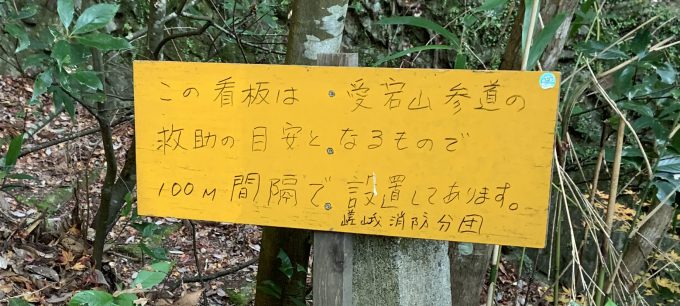 この看板は愛宕山参道の
救助の目安となるもので
100M間隔で設置してあります。
嵯峨消防分団